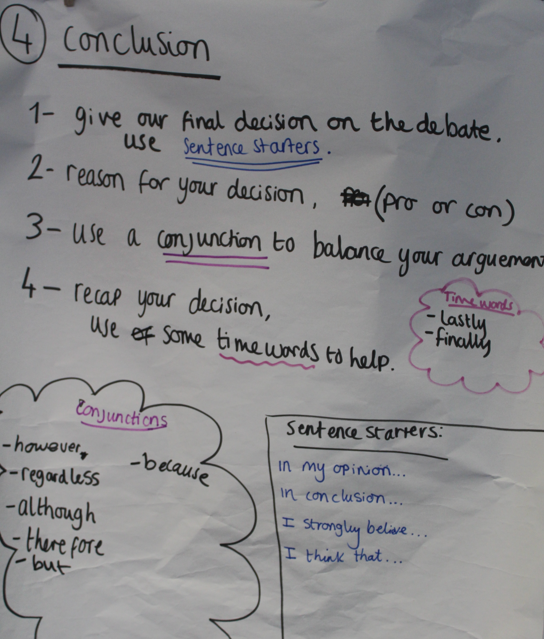 4 Conclusion
1- give our final decision on the debate.
use sentence starters.
2- reason for your decision, (pro or con)
3- use a conjunction to balance your arguement
4- recap your decision,
use of some time words to help.
Time words
- lastly
- finally
Conjunctions
- however,
- because
- regardless
- although
- therefore
- but
Sentence starters:
In my opinion...
In conclusion...
I strongley belive...
I think that...